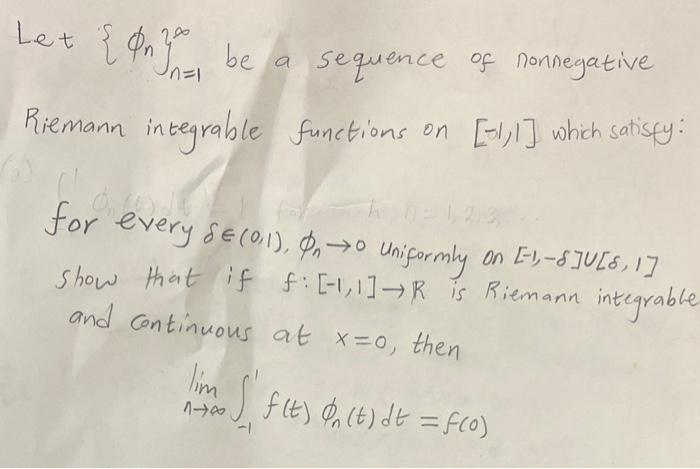 Let { ϕn }∞n=1 be a sequence of nonnegative
Riemann integrable functions on [-1,1] which satisfy:
for every δ∈(0,1), ϕn→0 Uniformly on [-1,-δ]U[δ,1]
show that if f:[-1,1]→R is Riemann integrable
and continuous at x=0, then
lim n→∞ ∫-1^1 f(t) ϕn(t) dt = f(0)